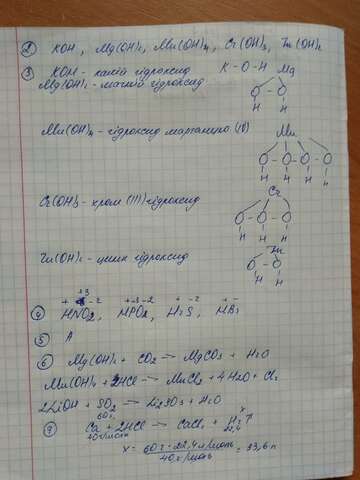 ② KOH, Mg(OH)₂, Mn(OH)₄, Cr(OH)₃, Zn(OH)₂
③ KOH - калій гідроксид K - O - H Mg
Mg(OH)₂ - магній гідроксид O O
H H
Mn(OH)₄ - гідроксид (IV) Mn
O O O O
H H H H
Cr(OH)₃ - хром (III) гідроксид Cr
O O O
H H H
Zn(OH)₂ - цинк гідроксид Zn
O O
H H
+ +3 -2 + +3 -2 + -2 + -
④ HNO₂, HPO₂, H₂S, HBr
⑤ А
⑥ Mg(OH)₂ + CO₂ → MgCO₃ + H₂O
Mn(OH)₄ + HCl → MnCl₂ + 4H₂O + Cl₂
2LiOH + SO₂ → Li₂SO₃ + H₂O
60г x
⑨ Ca + 2HCl → CaCl₂ + H₂↑
40г/моль 22,4
x = 60г · 22,4 л/моль / 40г/моль = 33,6 л